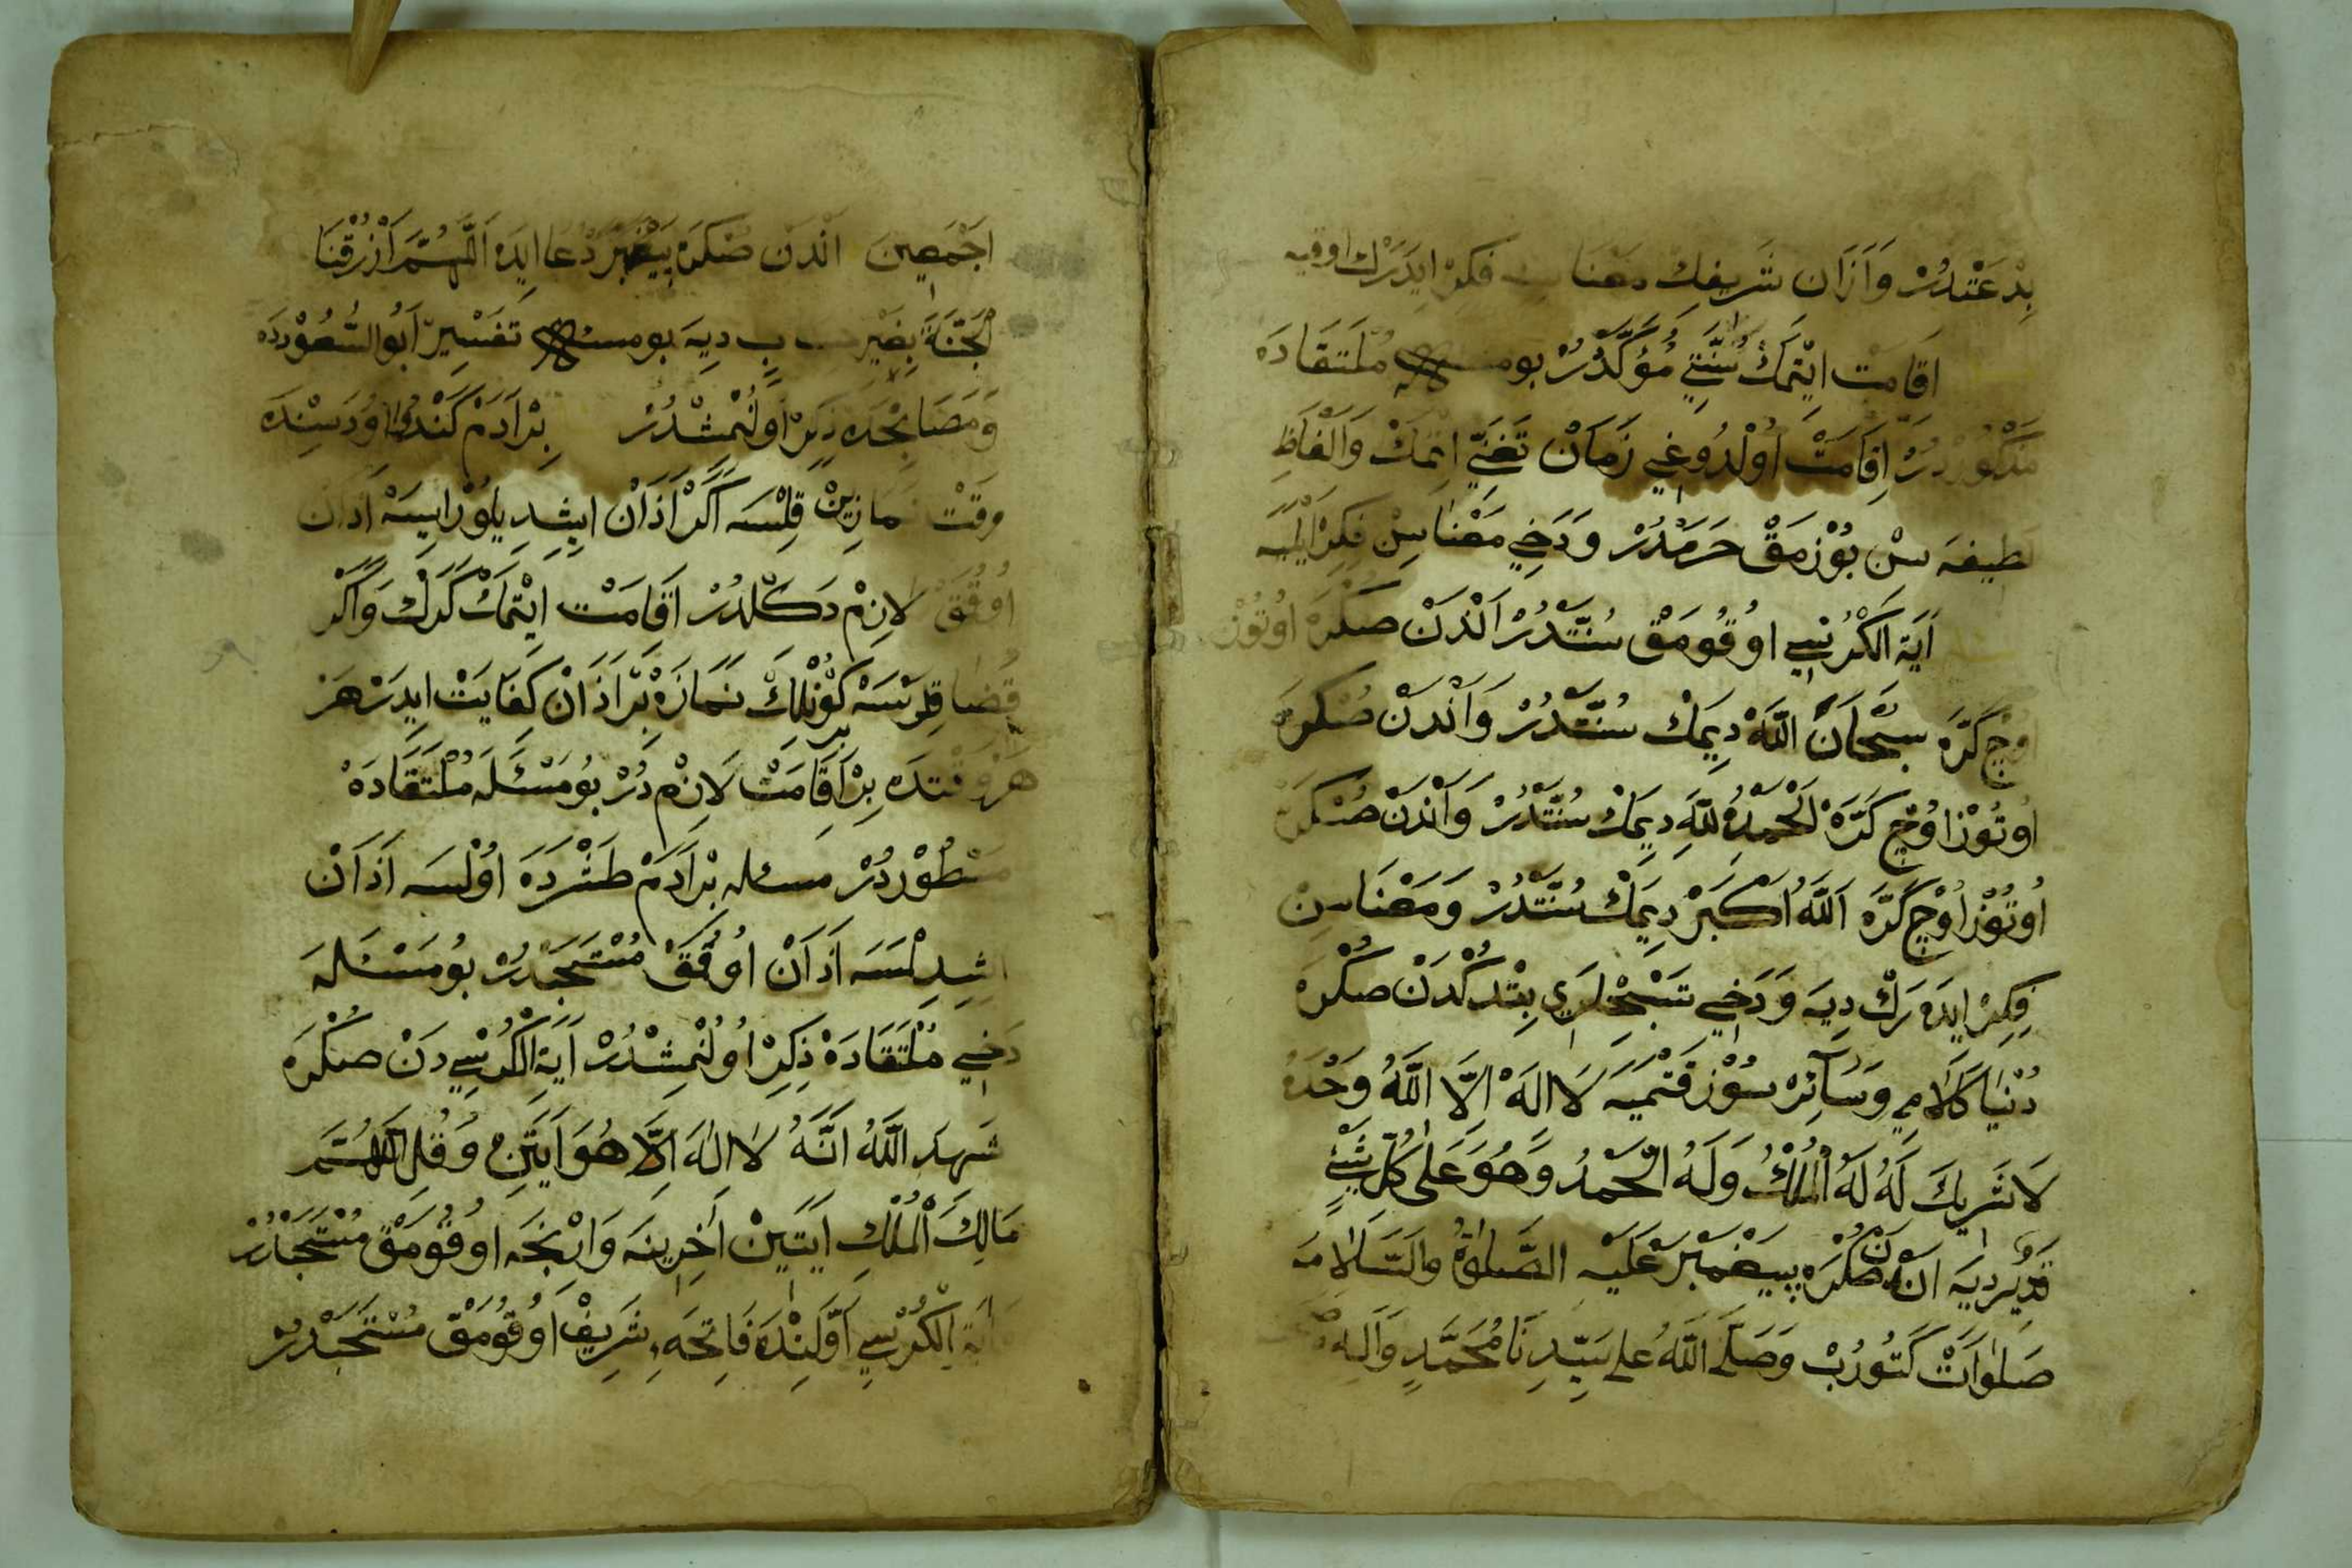 بِدْعَتْدُرْ وَاَزَانِ شَرِيفِكْ مَعْنَاسِ فِكِرْ ايدَرَكْ اوقيه
اَقَامَتْ ايْتمَكْ سُنَّتِي مُؤَكَّدُرْ بو مسئله مُلْتَقَادَه
مَذْكُورْدُرْ اِقَامَتْ اُولْدُوغِي زَمَانْ تَغَنِّي اتمَكْ وَالْفَاظِ
لطيفه سنْ بُوْزمَقْ حَرَمْدُرْ وَدَخِي مَعْنَاسِنْ فِكِرْ ايْلَيَه
اَيَةَ الكُرْسِي اوُقُومَقْ سُنَّتْدُرْ اَنْدَنْ صكره اُوتُوْز
اوُچ كَرَّه سُبْحَانَ اللَّه دِيمَكْ سُنَّتْدُرْ وَاَنْدَنْ صُكرَه
اوُتُوْز اوُچ كَرَّه اَلْحَمْدُ لِلَّهِ دِيمَكْ سُنَّتْدُرْ وَاَنْدَنْ صُكرَه
اُوتُوْز اوُچ كَرَّه اَللَّهُ اَكْبَرْ دِيمَكْ سُنَّتْدُرْ وَمَعْنَاسِنْ
فِكِرْ ايدَه رَكْ دِيَه وَدَخِي تَسْبِحْلَرِي بِتْدِكْدَنْ صكْرَه
دُنْيَا كَلَامِ وَسَآئِرْ سُوْز قَتْمَيَه لَا اِلَهَ اِلَّا اللَّهُ وَحْدَهُ
لَا شَرِيكَ لَهُ لَهُ الْمُلْكُ وَلَهُ الْحَمْدُ وَهُوَ عَلَى كُلِّ شَيْءٍ
قَدِيرْ ديَه اَنْدَنْ صُكْرَه پَيغَمْبَرْ عَلَيْهِ الصَّلوٰةُ والسَّلَامَه
صَلَوَاتْ كَتُورُبْ وَصَلَّى اللَّهُ عَلَى سَيِّدِنَا مُحَمَّدٍ وَآلِهِ
اَجْمَعِينَ اَنْدَنْ صُكرَه پيغمبر دُعَا ايدَه اَللَّهُمَّ اَرْزُقْنَا
الْجَنَّةَ بِغَيْرِ حساب ديَه بو مسئله تَفْسِيرْ اَبُو السُّعُوْددَه
وَمَصَابِحْدَه ذِكِرْ اُولُنْمِشْدُرْ بِرْ اَدَمْ كَنْدُو اوُدَسِنْدَه
وقتْ نَمازِينْ قِلْسَه اَكَرْ اَذَانْ ايشِدِ يلُورْ ايسَه اَذَانْ
اوُقُمَقْ لازِمْ دَكلْدُرْ اَقَامَتْ ايْتمَكْ كَرَكْ وَاكَرْ
قَضَا قِلَرْسَه كُوْنْلكْ نَمَازَه بِرْ اَذَانْ كِفَايَتْ ايدَرْ هَرْ
هَرْ وقتدَه بِرْ اَقَامَتْ لَازِمْ دُرْ بُو مَسْئَلَه مُلْتَقَادَه
مَسْطُوْردُرْ مسئله بِرْ اَدَمْ طَشْرَدَه اوُلْسَه اَذَانْ
اشِدِلْمَسَه اَذَانْ اوُقُمَقْ مُسْتَحَبْدُرْ بُو مَسْئَلَه
دَخِي مُلْتَقَادَه ذِكِرْ اوُلُنْمِشْدُرْ اَيَةَ الْكُرْسِي دَنْ صكْرَه
شَهِدَ اللَّهُ اَنَّهُ لَا اِلَهَ اِلَّا هُوَ اَيَتِنِ وَقُلِ اللَّهُمَّ
مَالِكَ الْمُلْكِ اَيَتَينْ اَخِرِينَه وَارِنْجَه اوُقُومَقْ مُسْتَحَبْدُرْ
اَيَةَ الْكُرْسِي اَوَّلِنْدَه فَاتِحَه شَرِيفْ اوُقُومَقْ مُسْتَحَبْدُرْ